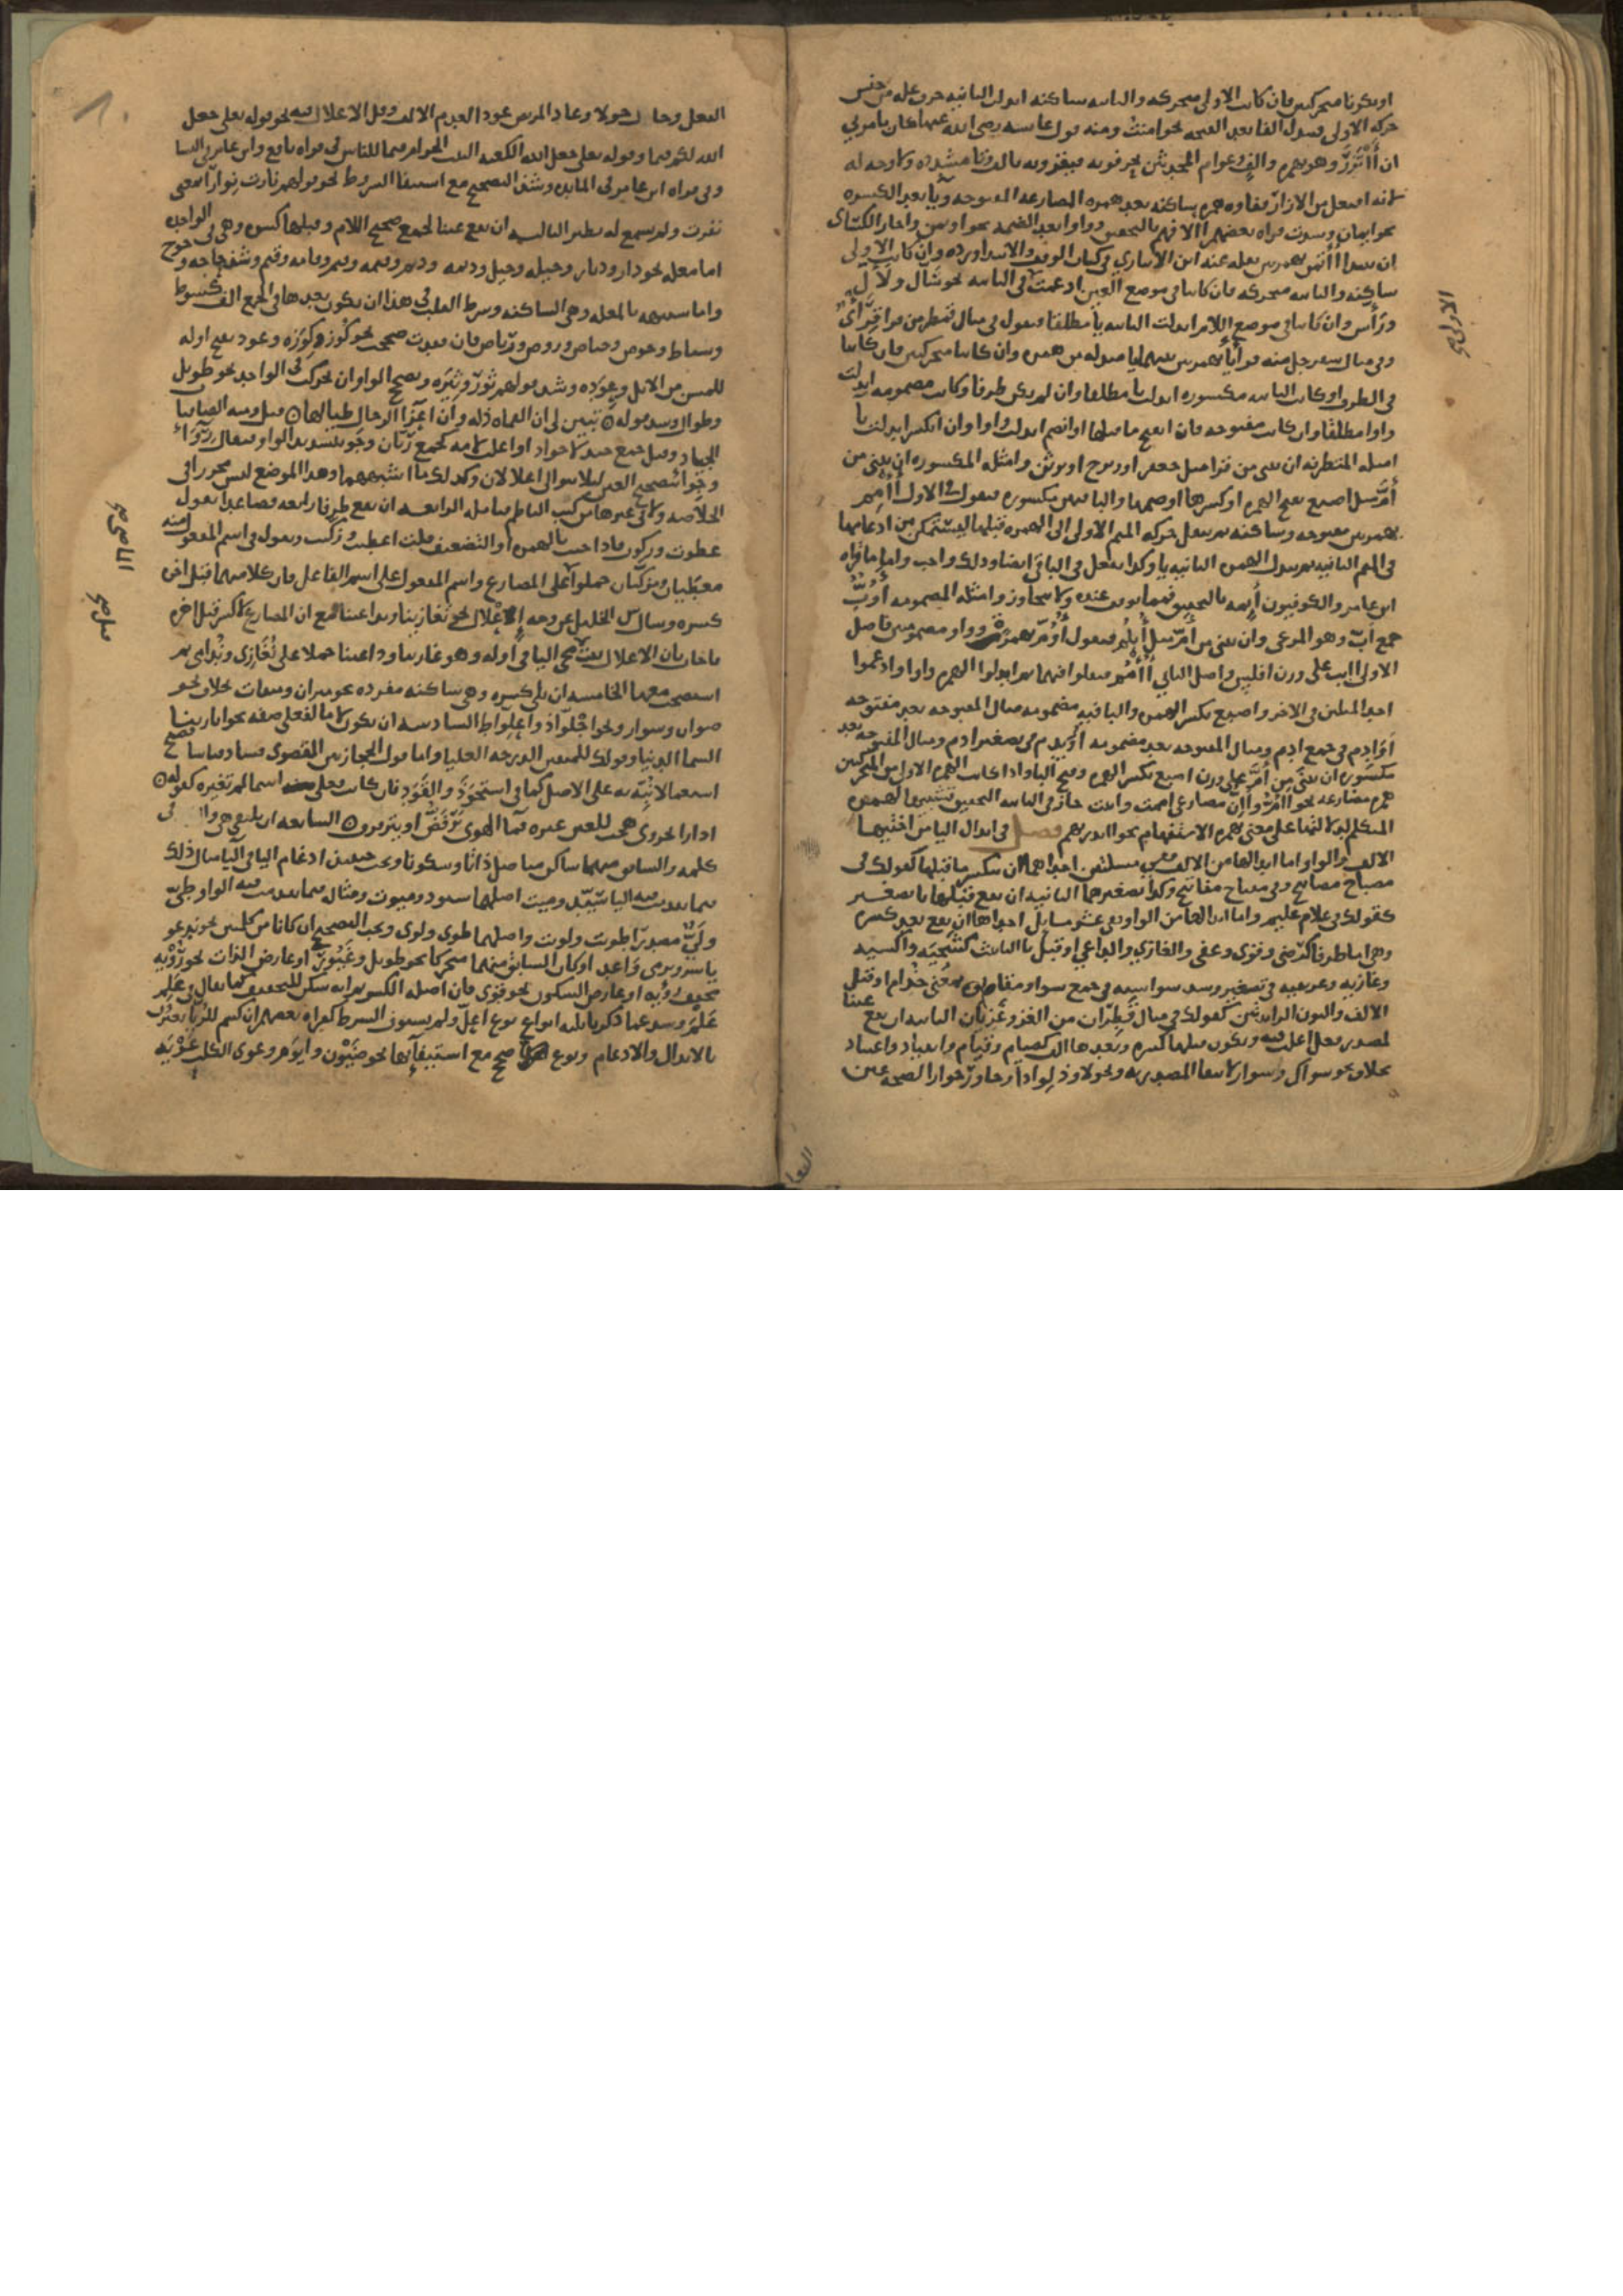 او يكونا متحركين فان كانت الاولى متحركه والثانيه ساكنه ابدلت الثانيه حرف عله من جنس
حركه الاولى فتبدل الفا بعد الفتحه نحو امنت ومنه قول عايشه رضي الله عنها كان يامرني
ان أأتزر وهو بهمزه والف وعوام المحدثين يحرفونه فيقرؤنه بالف وتا مشدده ولا وجه له
لانه افتعل من الازار ففاوه همزه ساكنه بعد همزه المضارعه المفتوحه ويا بعد الكسره
نحو ايمان وشذت قراه بعضهم االافهم بالتحقيق وواوا بعد الضمه نحو اوتمن واجاز الكسائي
ان يبتدا أأتمن بهمزتين نقله عنه ابن الانباري في كتاب الوقف والابتدا ورده وان كانت الاولى
ساكنه والثانيه متحركه فان كانتا في موضع العين ادغمت في الثانيه نحو سَّأل ولأّل
ورأّس وان كانتا في موضع اللام ابدلت الثانيه يا مطلقا فتقول في مثال قمطر من قرا قرأي
وفي مثال سفرجل منه قرأيأ بهمزتين بينهما يا مبدله من همزه وان كانتا متحركتين فان كانتا
في الطرف او كانت الثانيه مكسوره ابدلت يا مطلقا وان لم تكن طرفا وكانت مضمومه ابدلت
واوا مطلقا وان كانت مفتوحه فان انفتح ما قبلها او انضم ابدلت واوا وان انكسر ابدلت يا
امثله المتطرفه ان تبني من قرا مثل جعفر او زبرج او برثن وامثله المكسوره ان تبني من
أم مثل اصبع بفتح الهمزه او كسرها او ضمها والبا فيهن مكسوره فتقول في الاول أأمم
بهمزتين مفتوحه وساكنه ثم تنقل حركه الميم الاولى الى الهمزه قبلها ليتمكن من ادغامها
في الميم الثانيه ثم تبدل الهمزه الثانيه يا وكذا تفعل في الباقي ايضا وذلك واجب واما قراه
ابن عامر والكوفيين أيمه بالتحقيق فمما يوقف عنده ولا يتجاوز وامثله المضمومه أوب
جمع اب وهو المرعى وان تبني من أم مثل أبلم فتقول أوم بهمزه وواو مضمومتين واصل
الاولى اابب على وزن افلس واصل الثاني أأمم فنقلوا فيهما ثم ابدلوا الهمزه واوا وادغموا
احد المثلين في الاخر واصبع بكسر الهمزه والبا فيه مضمومه مثال المفتوحه بعد مفتوحه
أوادم في جمع ادم ومثال المفتوحه بعد مضمومه أويدم في تصغير ادم ومثال المفتوحه بعد
مكسوره ان تبني من أم على وزن اصبع بكسر الهمزه وفتح البا واذا كانت الهمزه الاولى من المتحركتين
همزه مضارعه نحو أأم وأإن مضارعي اممت وانت جاز في الثانيه التحقيق تشبيها لهمزه
المتكلم لدلالتها على معنى بهمزه الاستفهام نحو أأنذرتهم فصل في ابدال اليا من اختيها
الالف والواو اما ابدالها من الالف ففي مسئلتين احداهما ان ينكسر ما قبلها كقولك في
مصباح مصابيح وفي مفتاح مفاتيح وكذا تصغيرهما الثانيه ان يقع قبلها يا تصغير
كقولك في غلام غليم واما ابدالها من الواو ففي عشر مسايل احداها ان يقع بعد كسره
وهي اما طرف كرضي وقوي وعفي والغازي والداعي او قبل تا التانيث كشجيه واكسيه
وغازيه وعريقيه في تصغير وشذ سواسيه في جمع سوا ومقاتوه بمعنى خدام او قبل
الالف والنون الزايدتين كقولك في مثال قطران من الغزو غزيان الثانيه ان يقع عينا
لمصدر فعل اعلت فيه ويكون قبلها كسره وبعدها الف كصيام وقيام وانقياد واعتياد
بخلاف نحو سواك وسوار لانتفا المصدريه ونحو لاوذ لواذا وجاور جوارا لصحه عين
الاولى صح
الفعل وحال حولا وعاد المريض عودا لعدم الالف وقل الاعلال فيه نحو قوله تعالى جعل
الله لكم قيما وقوله تعالى جعل الله الكعبه البيت الحرام قيما للناس في قراه نافع وابن عامر في النسا
وفي قراه ابن عامر في المايده وشذ التصحيح مع استيفا الشروط نحو قولهم نارت نوارا بمعنى
نفرت ولم يسمع له نظير الثالثه ان يقع عينا لجمع صحيح اللام وقبلها كسره وهي في الواحد
اما معله نحو دار وديار وحيله وحيل وديمه وديم وقيمه وقيم وقامه وقيم وشذ حاجه وحوج
واما شبيهه بالمعله وهي الساكنه وشرط القلب في هذا ان يكون بعدها في الجمع الف كسوط
وسياط وحوض وحياض وروض ورياض فان فقدت صححت نحو كوز وكوزه وعود بفتح اوله
للمسن من الابل وعوده وشذ قولهم ثور وثيره وتصح الواو ان تحركت في الواحد نحو طويل
وطوال وشذ قوله تبين لي ان القماه ذله وان اعزا الرجال طيالها قيل ومنه الصافنات
الجياد وقيل جمع جيد لا جواد او اعلت لامه كجمع ريان وجو بتشديد الواو فيقال روآء
وجوآء بتصحيح العين ليلا يتوالى اعلالان وكذلك ما اشبههما وهذا الموضع ليس محررا في
الخلاصه ولا في غيرها من كتب الناظم فتامله الرابعه ان يقع طرفا رابعه فصاعدا تقول
عطوت وزكوت فاذا جيت بالهمزه او التضعيف قلت اعطيت وزكيت وتقول في اسم المفعول منه
معطيان ومزكيان حملوا على المضارع واسم المفعول على اسم الفاعل فان كلا منهما قبل اخره
كسره وسال س الخليل عن وجه الاعلال في تغازينا وتداعينا مع ان المضارع لا كسر قبل اخره
فاجاب بان الاعلال ثبت قبل مجي التا في اوله وهو غازينا وداعينا حملا على نغازي ونداعي ثم
استصحب معها الخامسه ان تلي كسره وهي ساكنه مفرده نحو ميزان وميقات بخلاف نحو
صوان وسوار ونحو اجلواذ واعلواط السادسه ان تكون لاما لفعلى صفه نحو انا زينا
السما الدنيا وقولك للمتقين الدرجه العليا واما قول الحجازيين القصوى فشاذ قياسا فصيح
استعمالا نبه به على الاصل كما في استحوذ والقود فان كانت فعلى اسما لم تغير كقوله
ادارا بحزوى هجت للعين عبره فمآ الهوى يرفض او يترقرق السابعه ان يلتقي هي واليا في
كلمه والسابق منهما ساكن متاصل ذاتا وسكونا ويجب حينيذ ادغام اليا في اليا مثال ذلك
فيما تقدمت فيه اليا سيد وميت اصلهما سيود وميوت ومثاله فيما تقدمت فيه الواو طي
ولي مصدرا طويت ولويت واصلهما طوي ولوي ويجب التصحيح ان كانا من كلمتين نحو يدعو
ياسر ويرمي واعد او كان السابق منهما متحركا نحو طويل وغيور او عارض الذات نحو روْيه
مخفف رؤيه او عارض السكون نحو قوي فان اصله الكسر ثم انه سكن للتخفيف كما يقال في علم
علم وشذ عما ذكرنا ثلثه انواع نوع اعل ولم يستوف الشرط كقراه بعضهم ان كنتم للريا تعبرون
بالابدال والادغام ونوع صح مع استيفآئها نحو ضيون وايوم وعوى الكلب عويه
الثاني صح
قبل صح